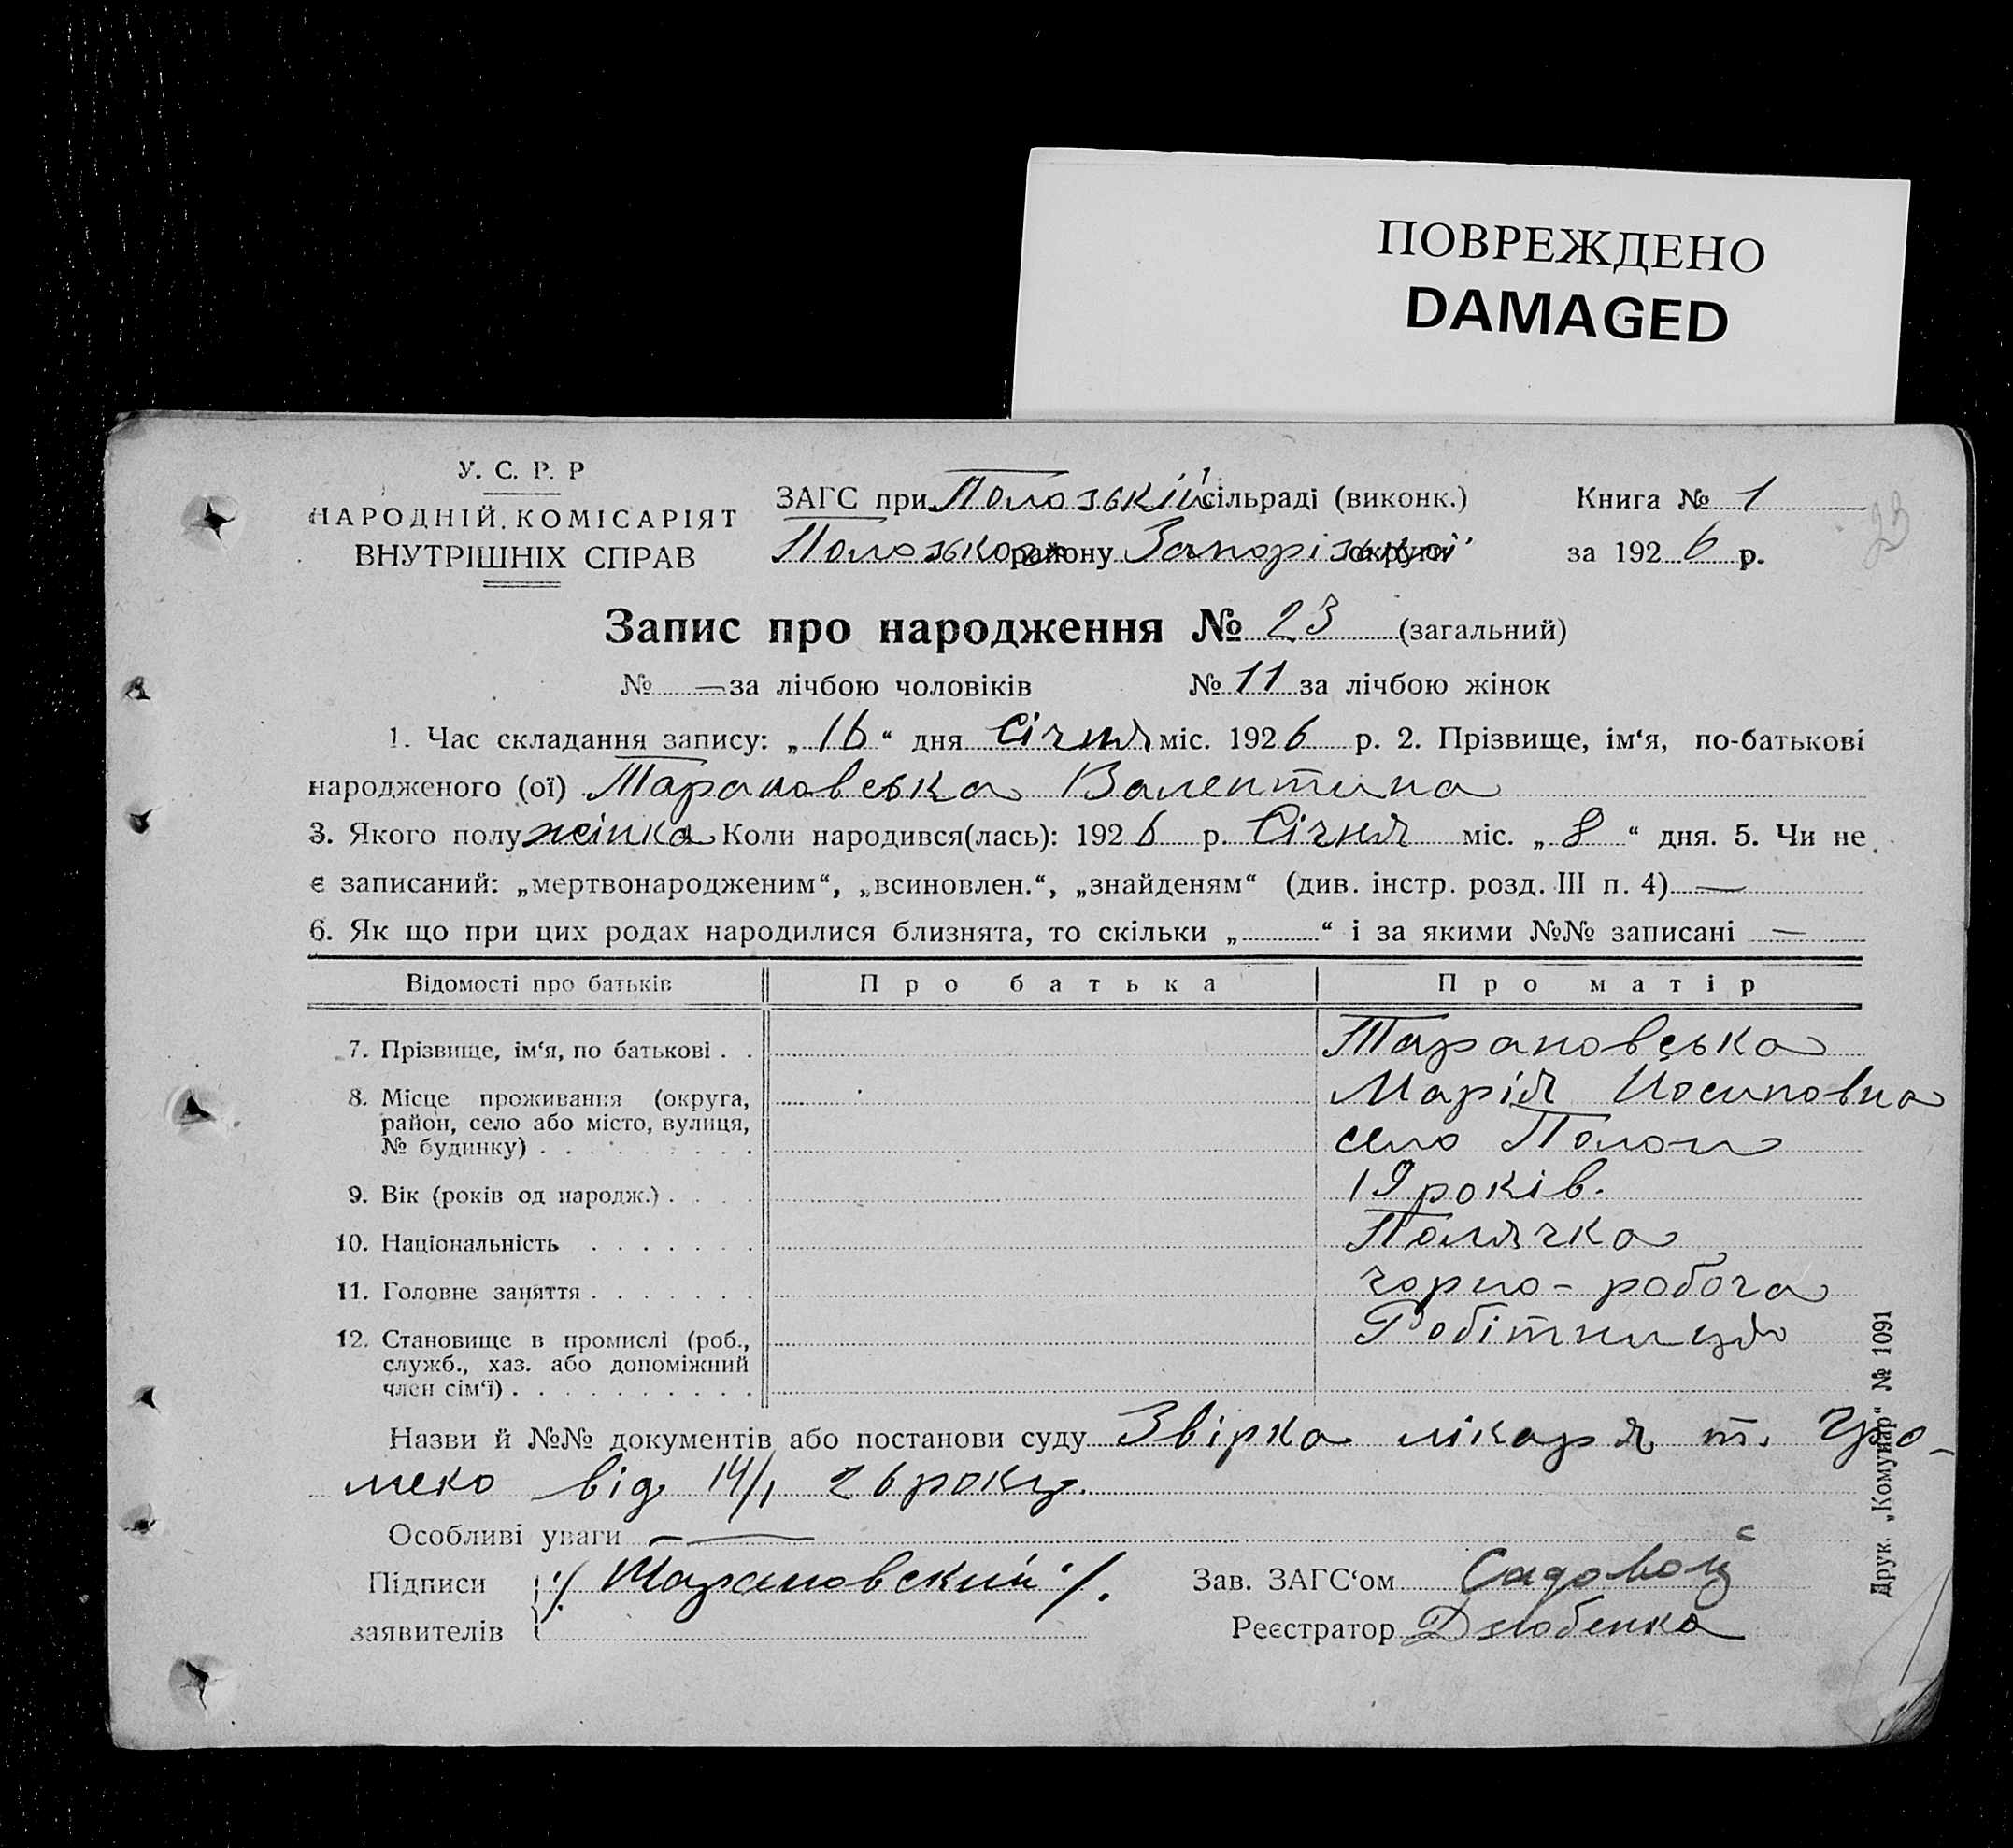 ПОВРЕЖДЕНО
DAMAGED
У. С. Р. Р
НАРОДНІЙ КОМІСАРІЯТ
ВНУТРІШНІХ СПРАВ
ЗАГС при Пологській сільраді (виконк.)
Пологського району Запорізької округи
Книга № 1
за 1926 р.
23
Запис про народження № 23 (загальний)
№ — за лічбою чоловіків № 11 за лічбою жінок
1. Час складання запису: „16“ дня Січня міс. 1926 р. 2. Прізвище, ім‘я, по-батькові
народженого (ої) Тарановська Валентина
3. Якого полу жінка Коли народився(лась): 1926 р. Січня міс. „8“ дня. 5. Чи не
є записаний: „мертвонародженим“, „всиновлен.“, „знайденям“ (див. інстр. розд. III п. 4) —
6. Як що при цих родах народилися близнята, то скільки „ “ і за якими №№ записані —
Відомості про батьків Про батька Про матір
7. Прізвище, ім‘я, по батькові . . Тарановська
8. Місце проживання (округа, Марія Иосиповна
район, село або місто, вулиця,
№ будинку) . . . . . . . . . село Пологи
9. Вік (років од народж.) . . . . 19 років.
10. Національність . . . . . . . Полячка
11. Головне заняття . . . . . . . чорно-робоча
12. Становище в промислі (роб., Робітниця
служб., хаз. або допоміжний
член сім‘ї) . . . . . . . . . .
Назви й №№ документів або постанови суду Звірка лікаря т. Гро-
меко від 14/1 26 року.
Особливі уваги —
Підписи /Тарановский/. Зав. ЗАГС‘ом Садовой
заявителів Реєстратор
Друк. „Комунар“ № 1091